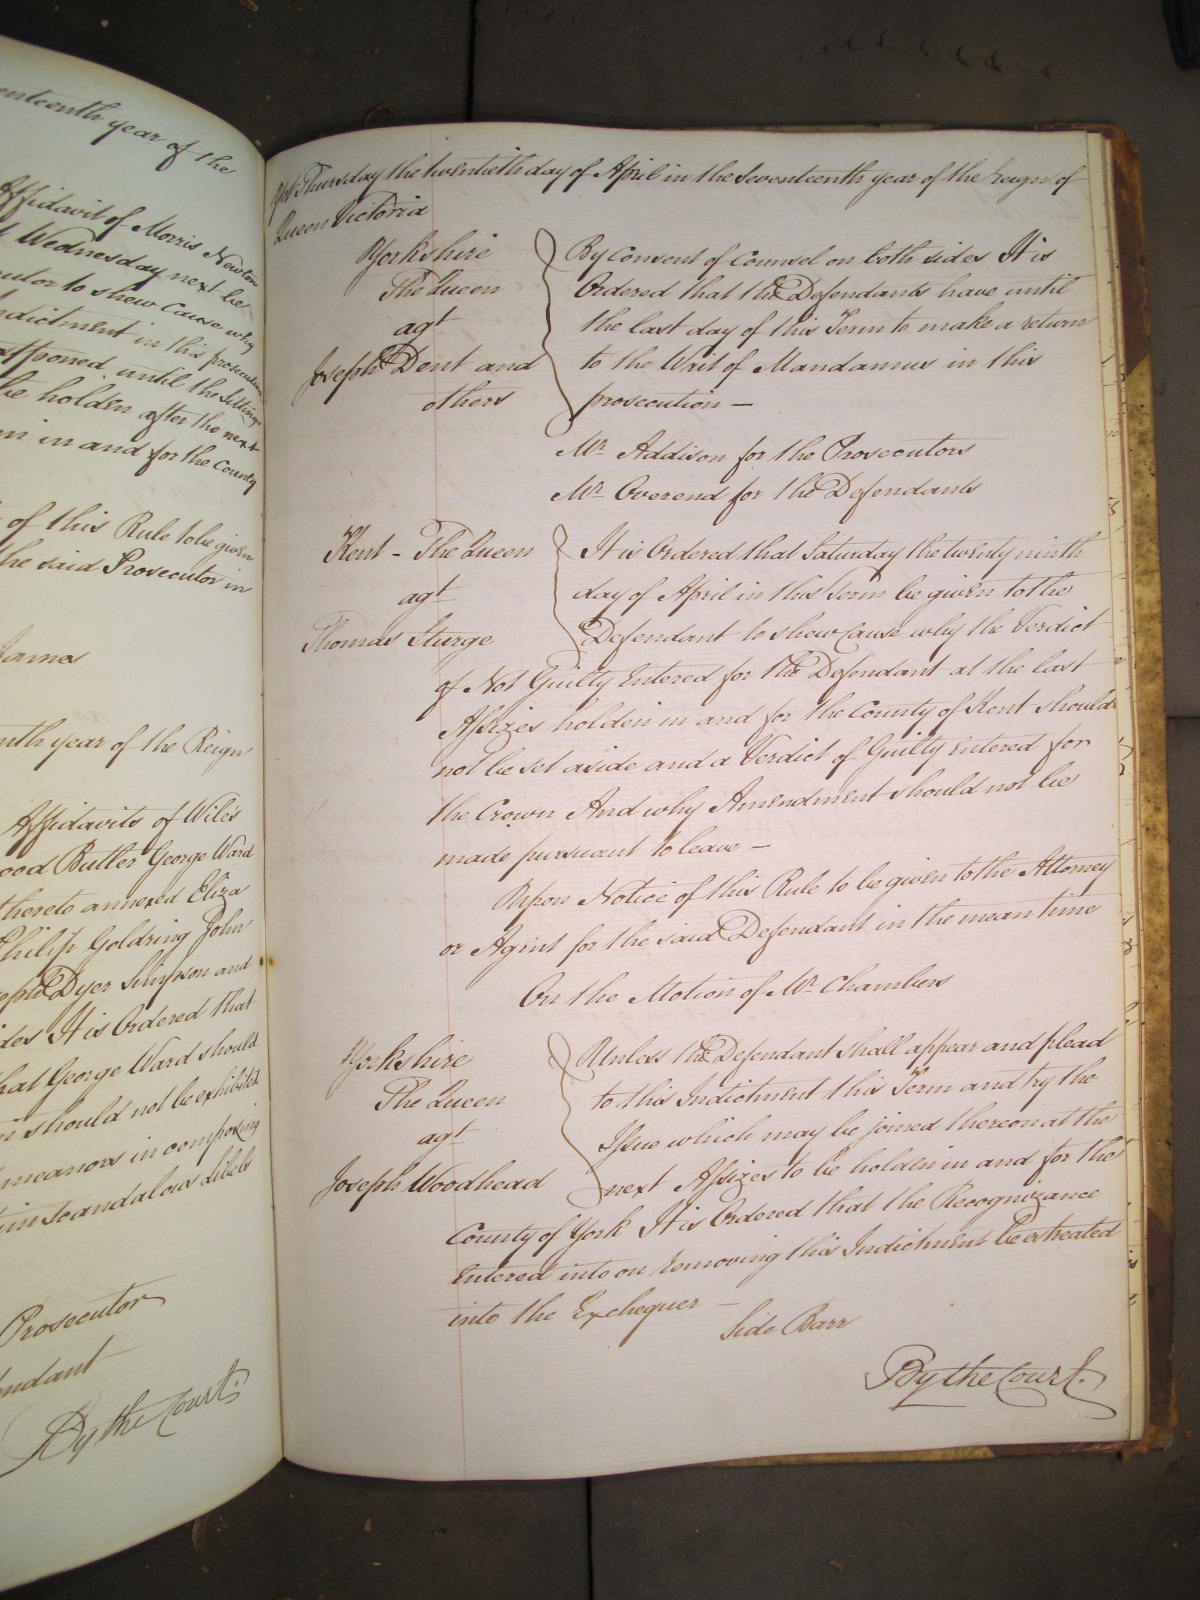 enteenth year of the
Affidavit of Morris Newton
Wednesday next be
cutor to shew Cause why
ndictment in this prosecution
ostponed until the Sittings
be holden after the next
in and for the County
of this Rule to be given
he said Prosecutor in
James
nth year of the Reign
Affidavits of Wiles
ood Butler George Ward
thereto annexed Eliza
Philip Goldring John
eph Dyer Simpson and
des It is Ordered that
hat George Ward should
n should not be exhibited
meanors in composing
in scandalous libels
Prosecutor
endant
By the Court
Upon Thursday the twentieth day of April in the seventeenth year of the Reign of
Queen Victoria
Yorkshire
The Queen
agt
Joseph Dent and
others
By Consent of Counsel on both sides It is
Ordered that the Defendants have until
the last day of this Term to make a return
to the Writ of Mandamus in this
prosecution —
Mr Addison for the Prosecutors
Mr Overend for the Defendants
Kent - The Queen
agt
Thomas Sturge
It is Ordered that Saturday the twenty ninth
day of April in this Term be given to the
Defendant to shew Cause why the Verdict
of Not Guilty Entered for the Defendant at the last
Assizes holden in and for the County of Kent should
not be set aside and a Verdict of Guilty entered for
the Crown And why Amendment should not be
made pursuant to leave —
Upon Notice of this Rule to be given to the Attorney
or Agent for the said Defendant in the mean time
On the Motion of Mr Chambers
Yorkshire
The Queen
agt
Joseph Woodhead
Unless the Defendant shall appear and plead
to this Indictment this Term and try the
Issue which may be joined thereon at the
next Assizes to be holden in and for the
County of York It is Ordered that the Recognizance
Entered into on removing this Indictment be estreated
into the Exchequer —
Side Barr
By the Court.